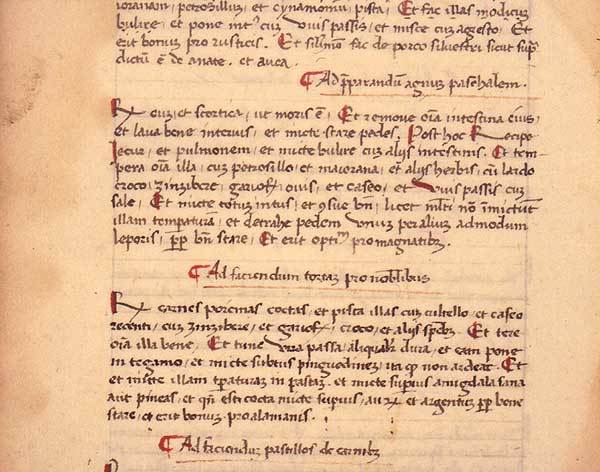 ioranam, petrosillum, et cynamomum pista, Et fac illas modicum
bulire, et pone intus cum uuis passis, et misce cum agresto, Et
erit bonum pro rusticis. Et similmo fac de porco siluestri sicut sup
dictum e de anate, et auca.
Ad pparandum agnum paschalem.
Rx eum, et scortica, ut moris e, Et remoue oia intestina eius,
et laua bene interius, et micte stare pedes. Post hoc Recipe
Iecur, et pulmonem, et micte bulire cum alijs intestinis. Et tem-
pera oia illa, cum petrosillo, et maiorana, et alijs herbis, cu lardo
croco, zinzibere, gariof, ouis, et caseo, et uuis passis cum
sale, Et micte totum intus, et 9sue bn, licet mlti no imictunt
illam temperatura, et detrahe pedem unum per alium ad modum
leporis, pp bn stare, Et erit optim pro magnatibz.
Ad faciendum tortam pro nobilibus
Rx carnes porcinas coctas, et pista illas cum cultello, et caseo
recenti, cum zinzibere, et gariof, croco, et alijs spebz. Et tere
oia illa bene, Et tunc una pasta aliqualr dura, et eam pone
in tegamo, et micte subtus pinguedinem, ita q non ardeat. Et
et micte illam tperatura in pastam, et micte supius amigdala sana
aut pineas, et qn est cocta micte supius, auru et argentum pp bene
stare, et erit bonum pro alamanis.
Ad faciendum pastillos de carnibz